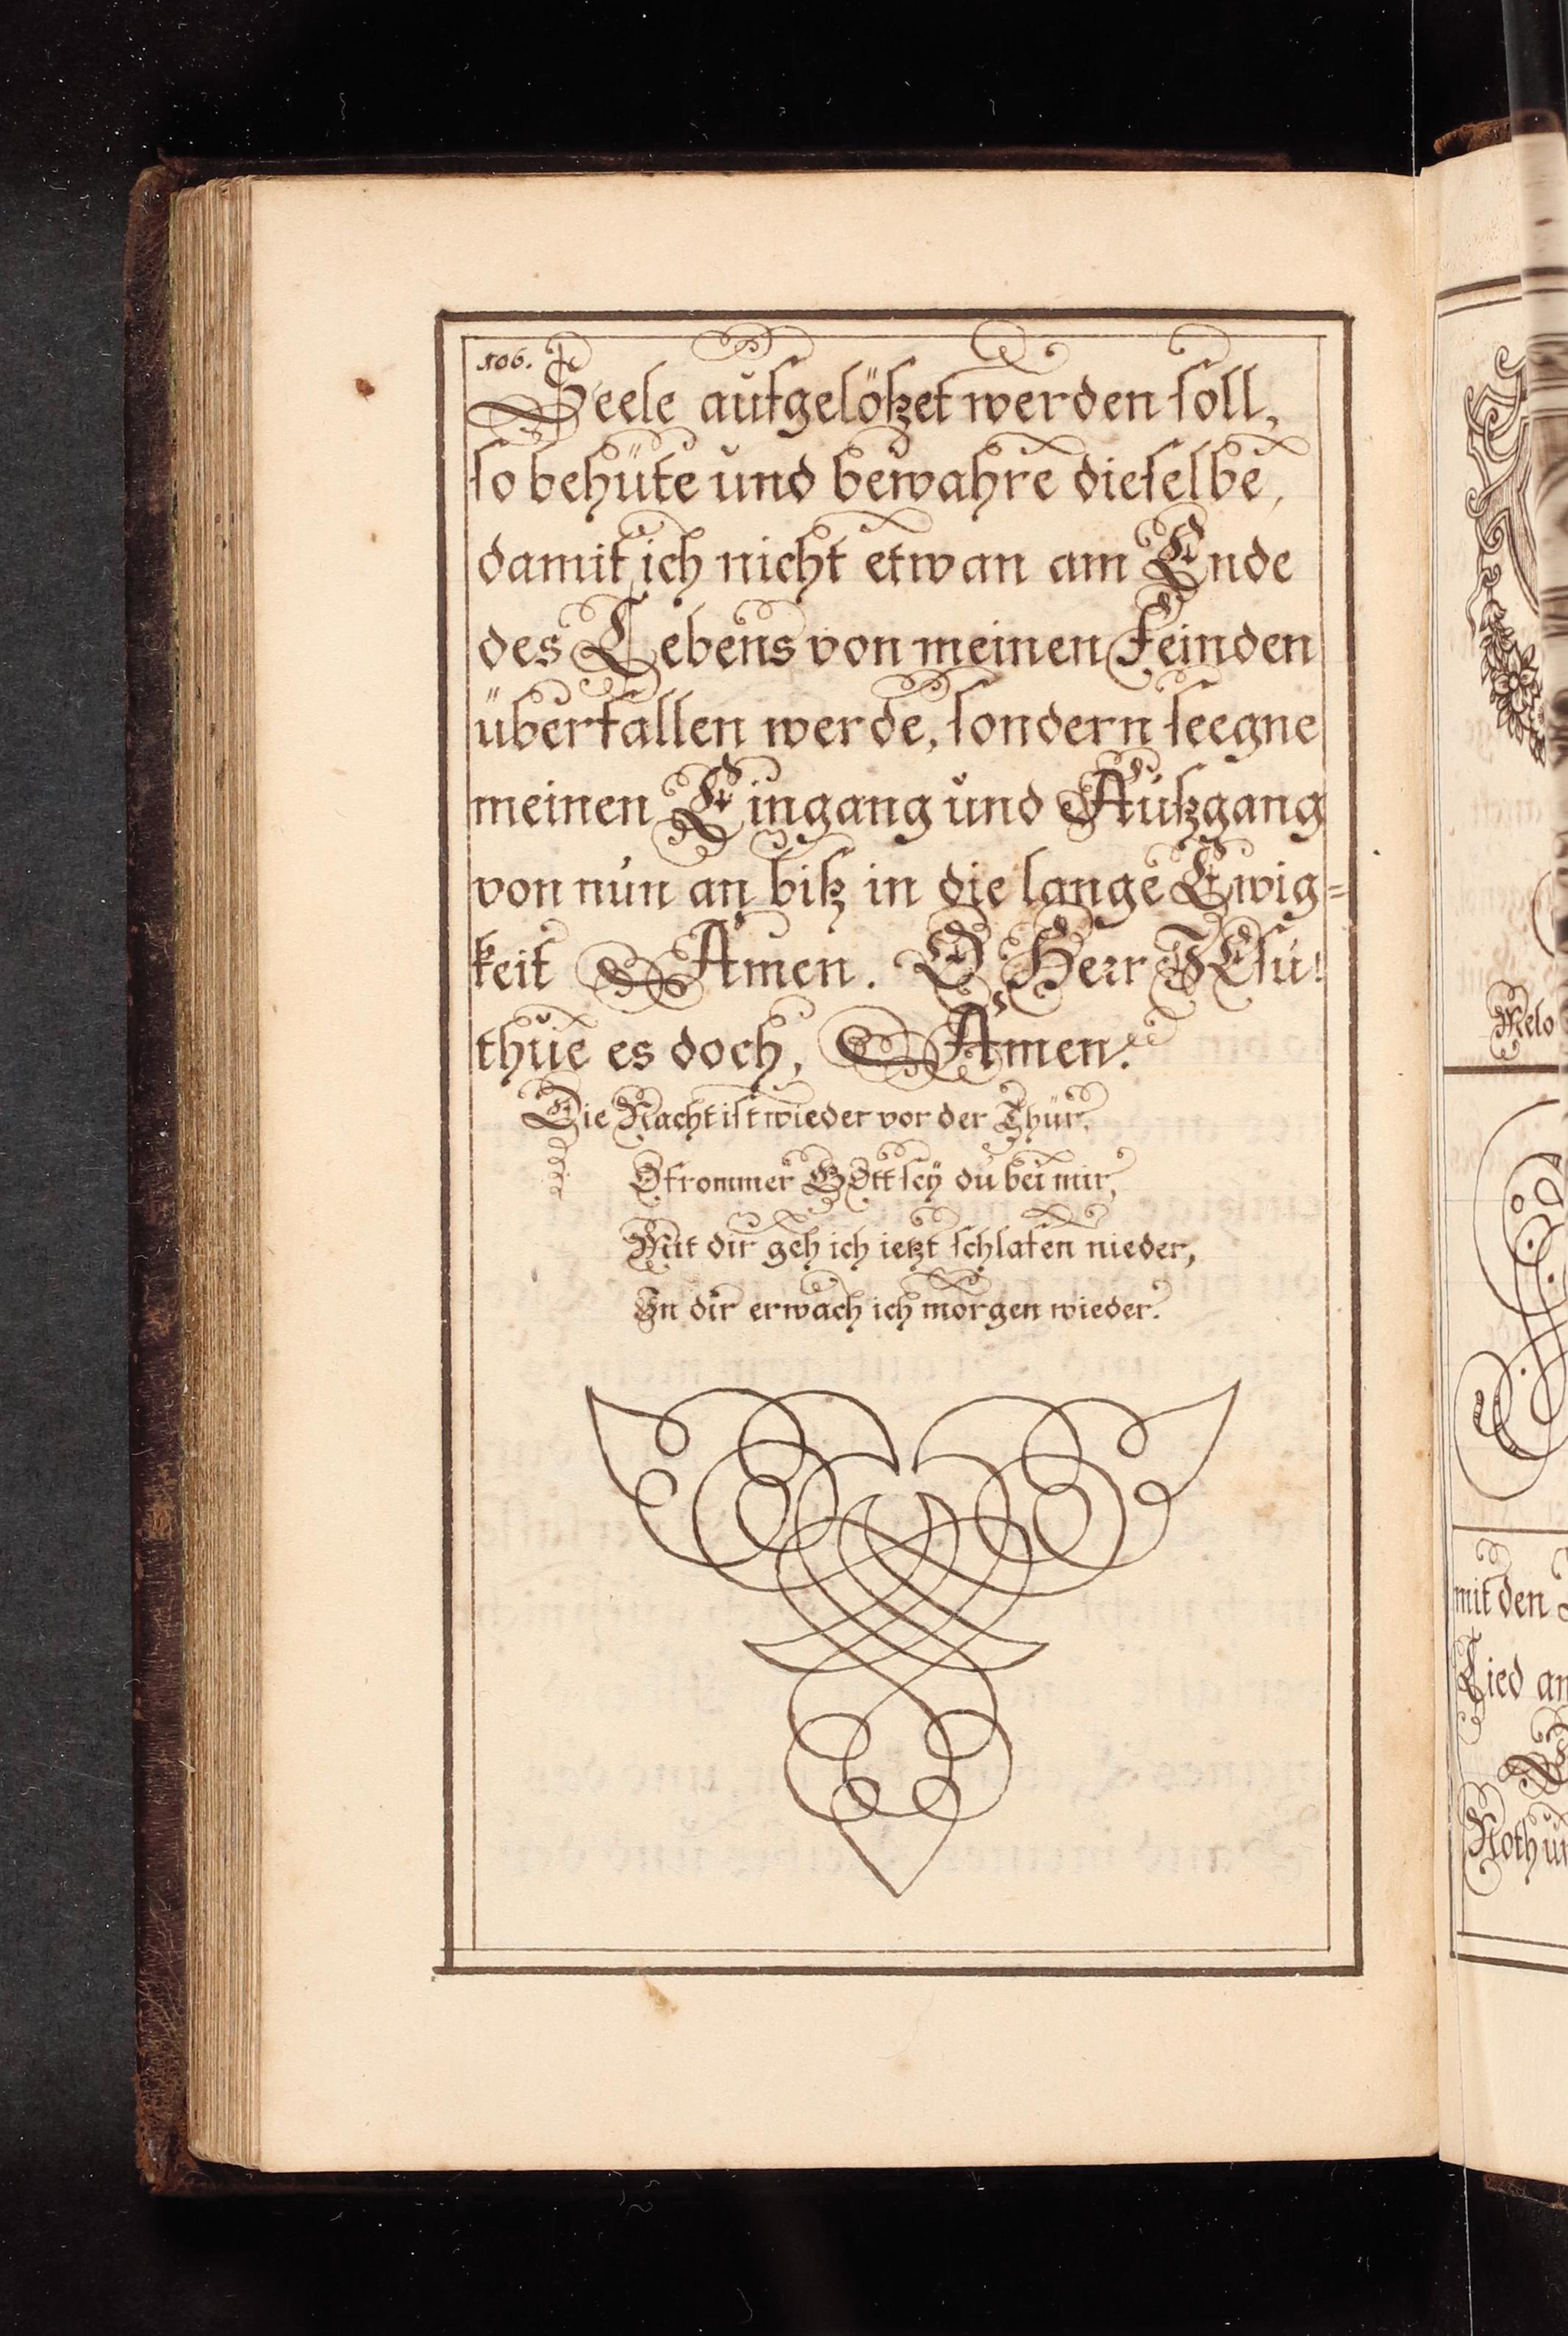 106.
Seele aufgelößet werden soll,
so behüte und bewahre dieselbe,
damit ich nicht etwan am Ende
des Lebens von meinen Feinden
überfallen werde, sondern seegne
meinen Eingang und Außgang
von nun an biß in die lange Ewig=
keit Amen. O Herr JEsu!
thue es doch, Amen.
Die Nacht ist wieder vor der Thür,
O frommer GOtt sey du bei mir,
Mit dir geh ich ietzt schlafen nieder,
In dir erwach ich morgen wieder.
Melo
mit den
Lied an
Noth un